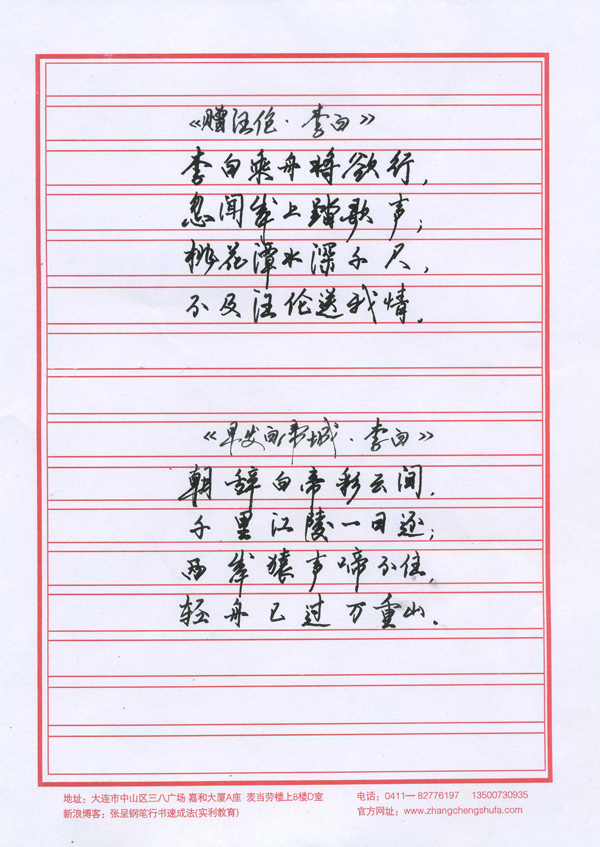 《赠汪伦·李白》
李白乘舟将欲行，
忽闻岸上踏歌声；
桃花潭水深千尺，
不及汪伦送我情。
《早发白帝城·李白》
朝辞白帝彩云间，
千里江陵一日还；
两岸猿声啼不住，
轻舟已过万重山。
地址：大连市中山区三八广场 嘉和大厦A座 麦当劳楼上8楼D室 电话：0411—82776197 13500730935
新浪博客：张呈钢笔行书速成法(实利教育) 官方网址：www.zhangchengshufa.com